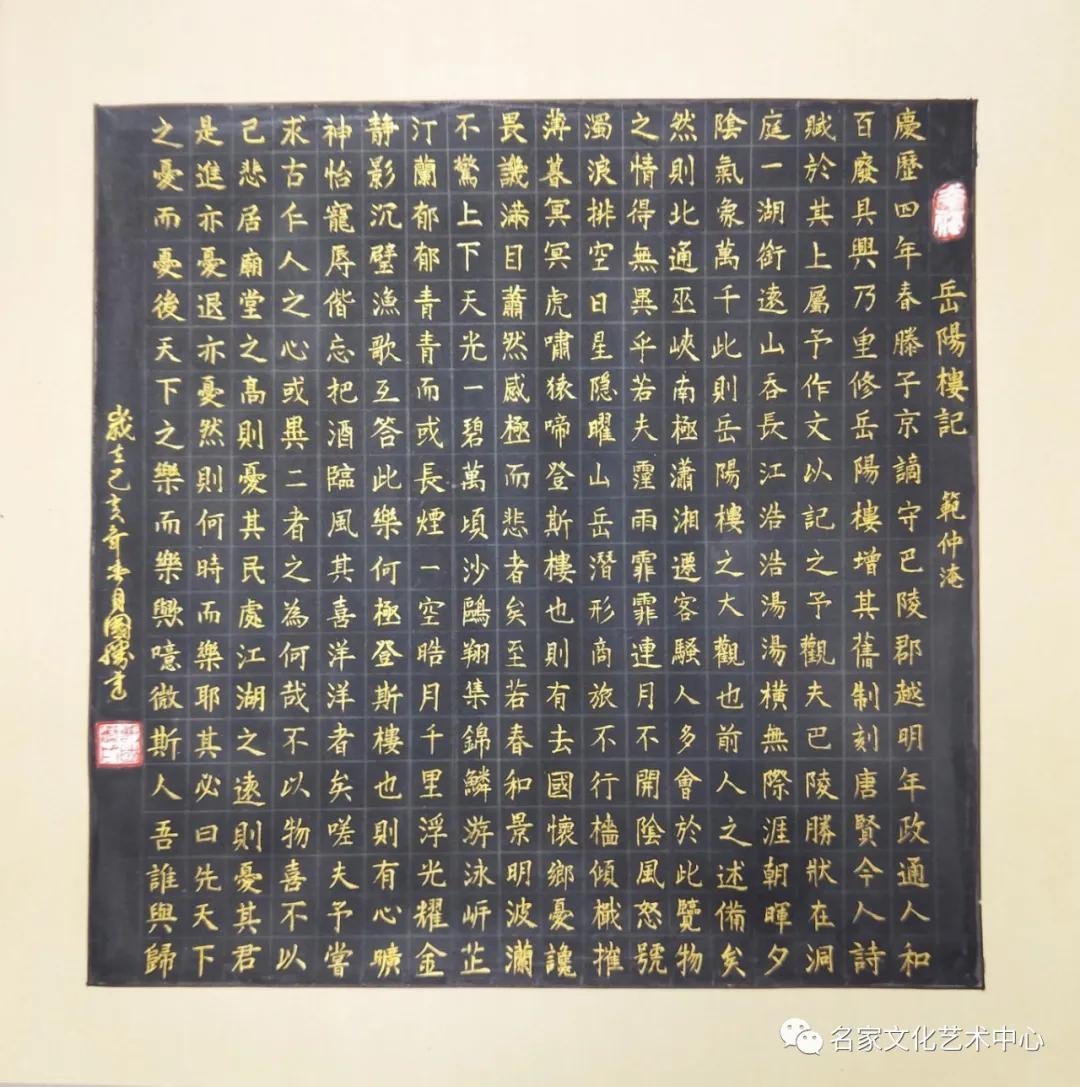 岳陽樓記 範仲淹
慶歷四年春滕子京謫守巴陵郡越明年政通人和
百廢具興乃重修岳陽樓增其舊制刻唐賢今人詩
賦於其上屬予作文以記之予觀夫巴陵勝狀在洞
庭一湖銜遠山吞長江浩浩湯湯橫無際涯朝暉夕
陰氣象萬千此則岳陽樓之大觀也前人之述備矣
然則北通巫峽南極瀟湘遷客騷人多會於此覽物
之情得無異乎若夫霪雨霏霏連月不開陰風怒號
濁浪排空日星隱曜山岳潛形商旅不行檣傾檝摧
薄暮冥冥虎嘯猿啼登斯樓也則有去國懷鄉憂讒
畏譏滿目蕭然感極而悲者矣至若春和景明波瀾
不驚上下天光一碧萬頃沙鷗翔集錦鱗游泳岸芷
汀蘭郁郁青青而或長煙一空皓月千里浮光耀金
静影沉璧漁歌互答此樂何極登斯樓也則有心曠
神怡寵辱偕忘把酒臨風其喜洋洋者矣嗟夫予嘗
求古仁人之心或異二者之為何哉不以物喜不以
己悲居廟堂之高則憂其民處江湖之遠則憂其君
是進亦憂退亦憂然則何時而樂耶其必曰先天下
之憂而憂後天下之樂而樂歟噫微斯人吾誰與歸
歲在己亥年春月國勝書
名家文化艺术中心